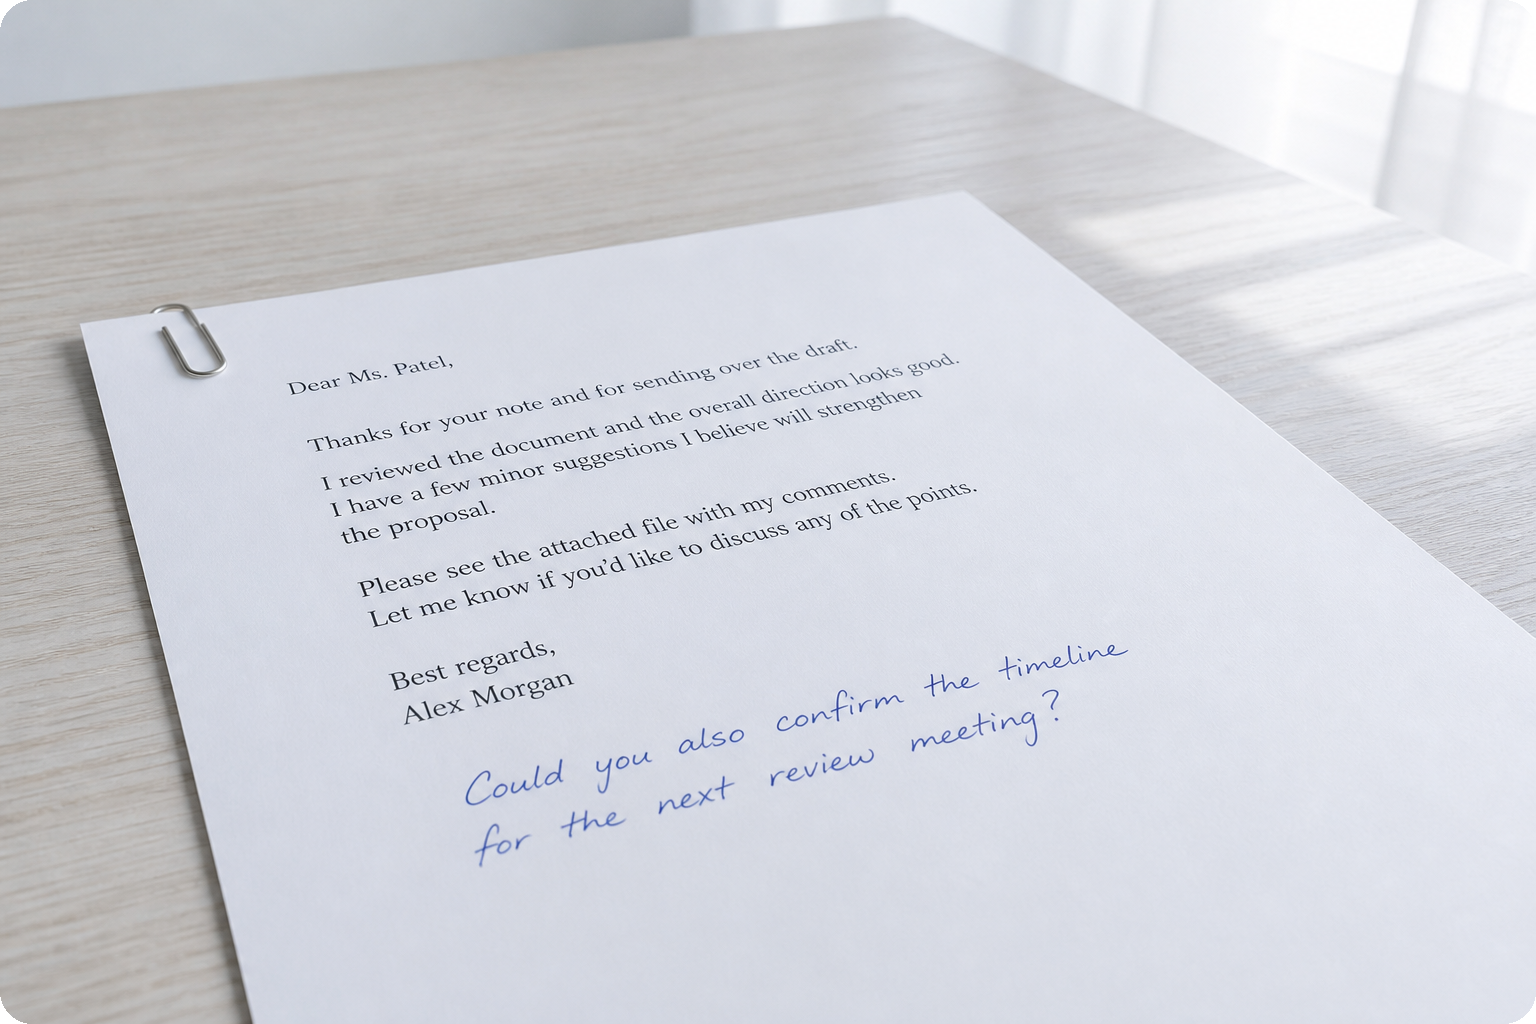 Dear Ms. Patel,
Thanks for your note and for sending over the draft.
I reviewed the document and the overall direction looks good.
I have a few minor suggestions I believe will strengthen
the proposal.
Please see the attached file with my comments.
Let me know if you’d like to discuss any of the points.
Best regards,
Alex Morgan
Could you also confirm the timeline
for the next review meeting?